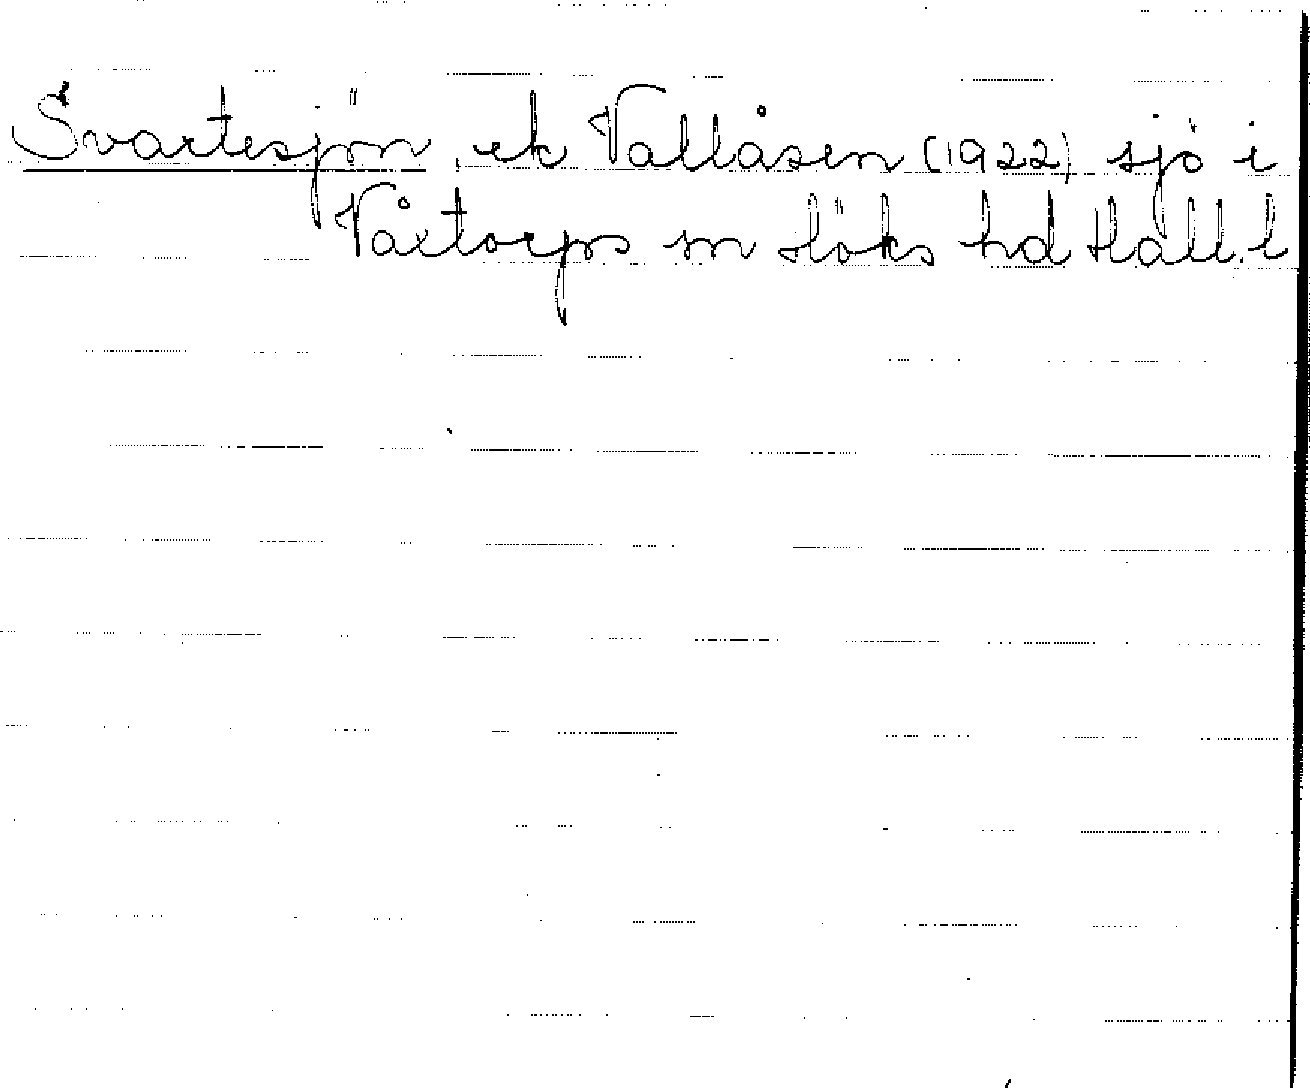 Svartesjön, ek Vallåsen (1922) sjö i
Våxtorps sn Höks hd Hall. l